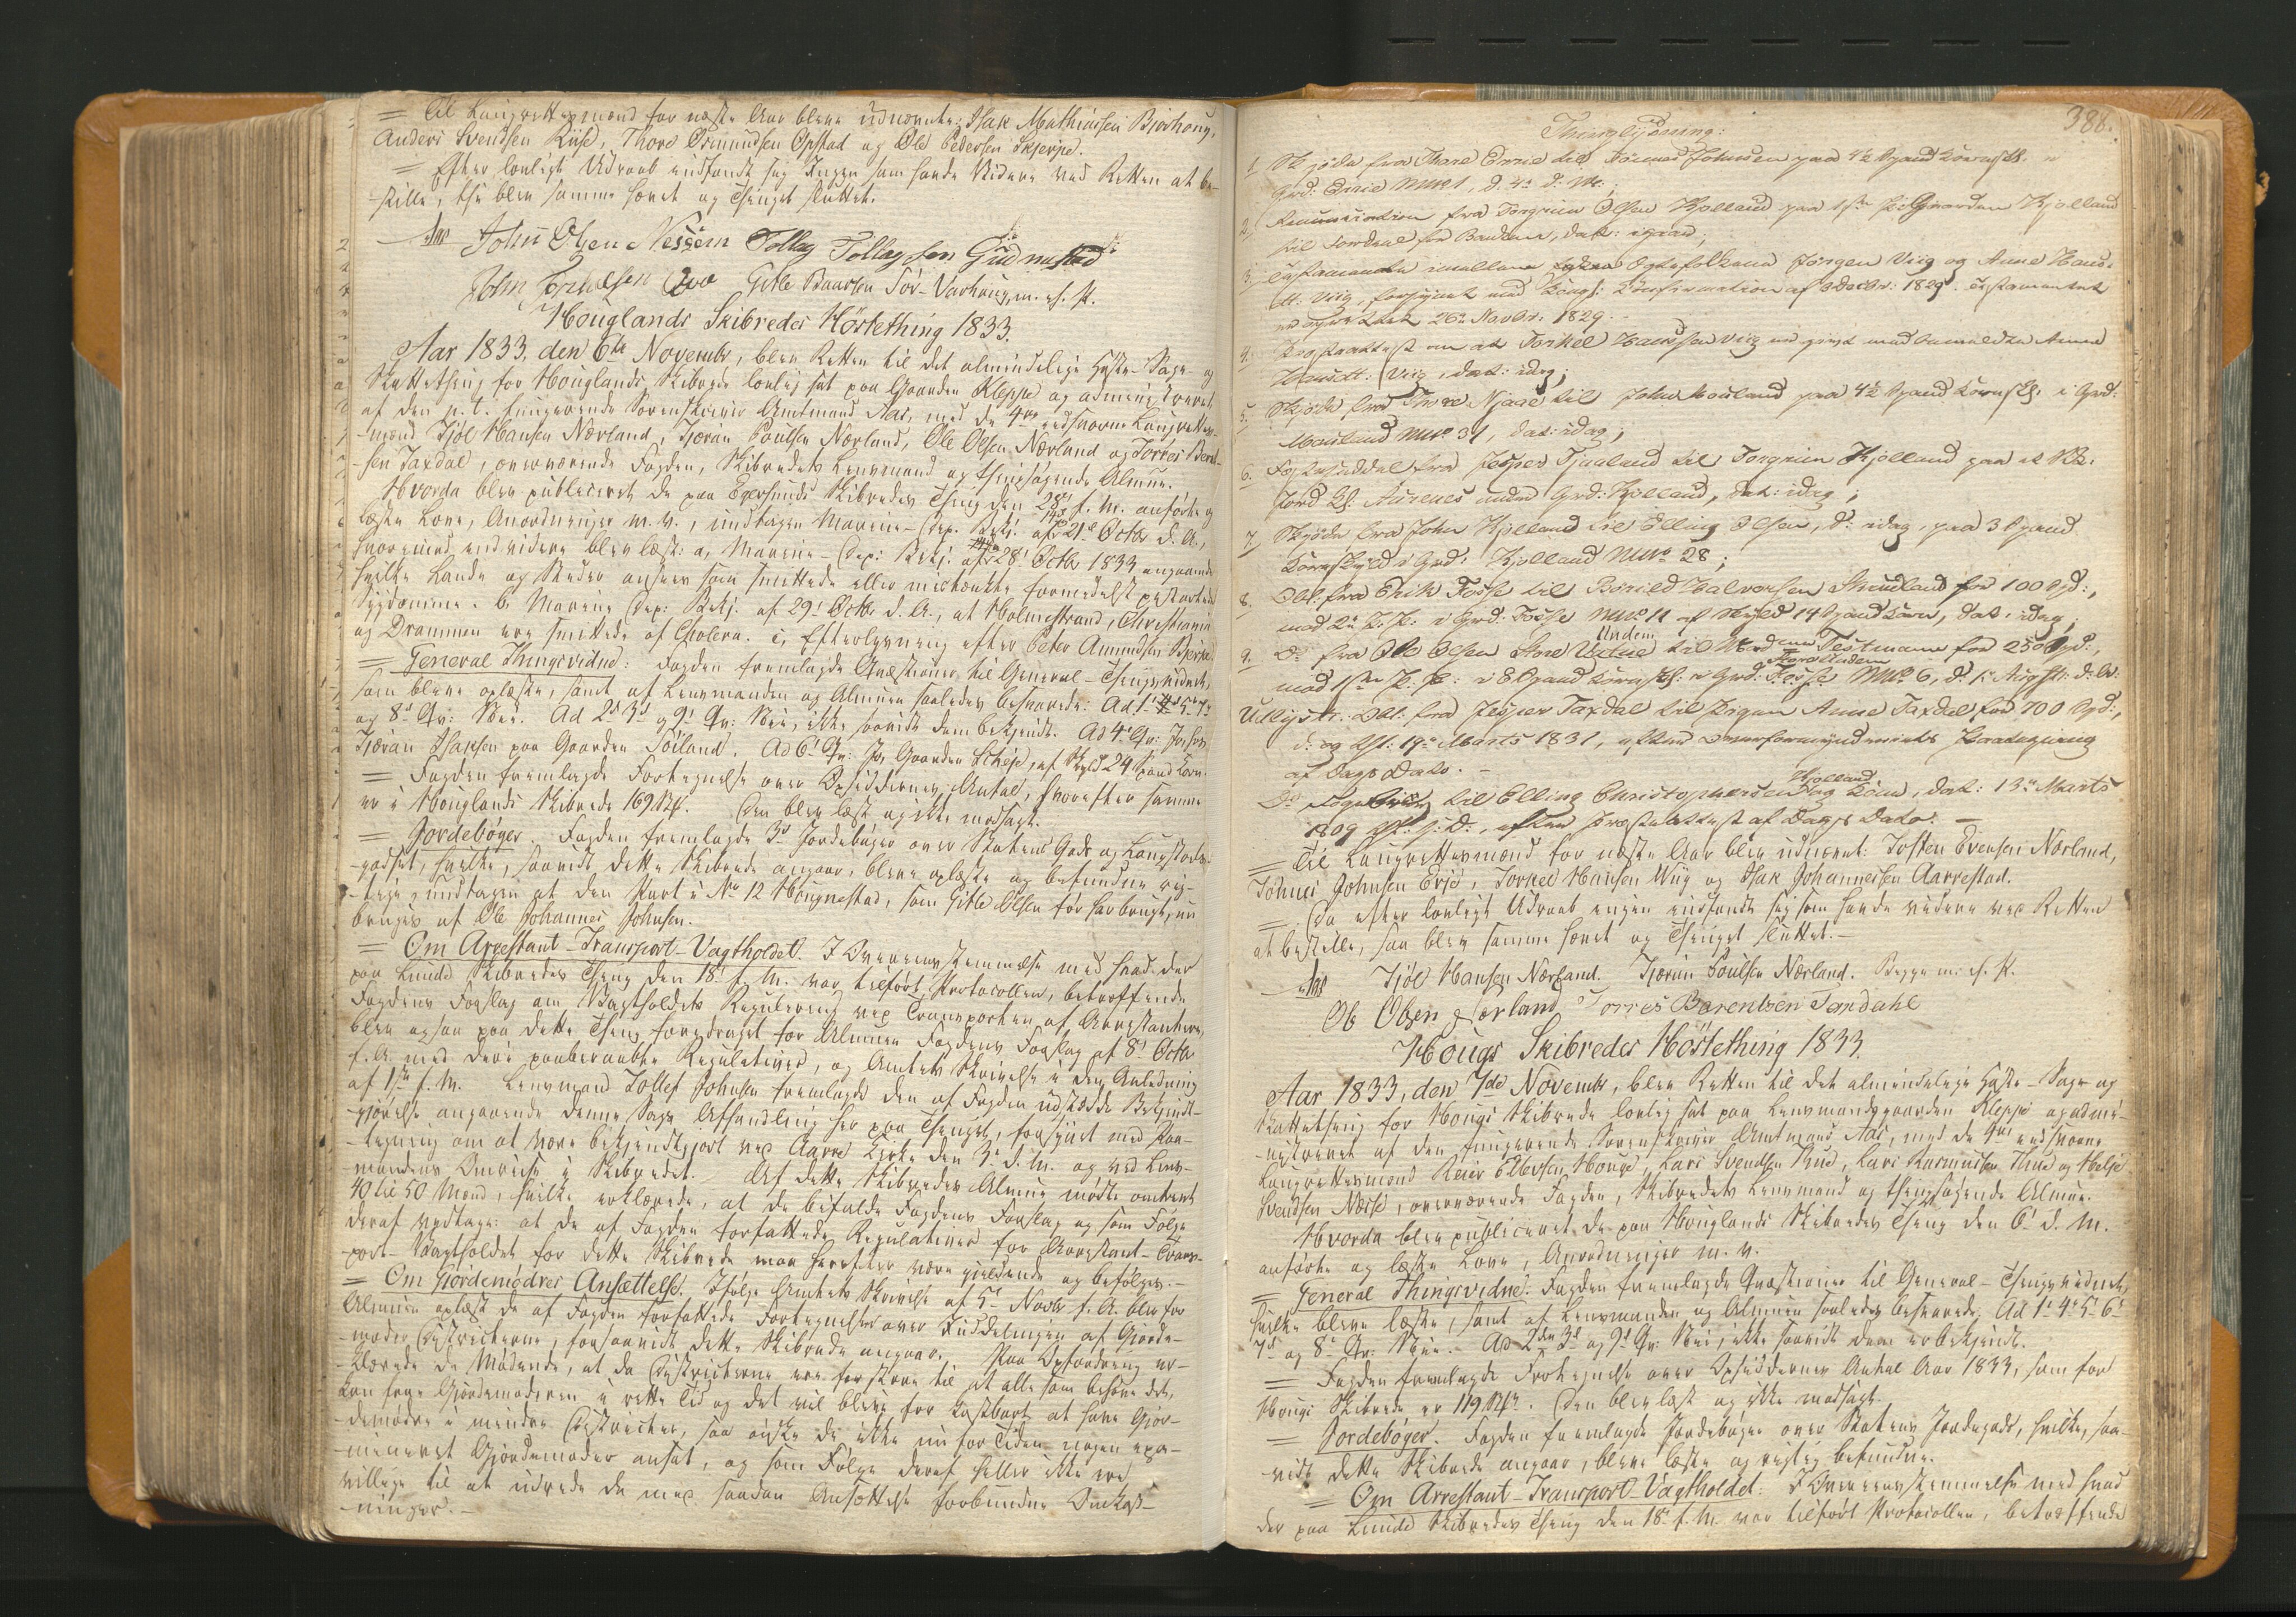 = Til Laugrettesmænd for næste Aar bleve udnævnte: Isak Mathiassen Bjorhoug,
Anders Svendsen Riise, Thore Osmundsen Opstad og Ole Pedersen Skjerpe.
= Efter lovligt Udraab indfandt sig Ingen som havde Videre ved Retten at be-
stille, thi blev samme hævet og Thinget sluttet.
John Olsen Nessem Tollag Tollagsen Gudmestad
John Gitle Baarsen Sør-Varhoug, m. f. P.
Houglands Skibredes Høstething 1833.
Aar 1833, den 6te Novembr, blev Retten til det almindelige Høste-Sage- og
Skattething for Houglands Skibrede lovlig sat paa Gaarden Kleppe og administreret
af den p. t. fungerende Sorenskriver Amtmand Aas, med de 4re edsvorne Laugrettes-
mænd Tjøl Hansen Nærland, Tjøran Poulsen Nærland, Ole Olsen Nærland og Torres Bent-
sen Taxdal, overværende Fogden, Skibredets Lensmand og thingsøgende Almue.
Hvorda blev publiceret de paa Egersunds Skibredes Thing den 28de f. M. anførte og
læste Love, Anordninger m. v., undtagen Marine-Dep. Bekj. af 21de Octbr d. A.,
hvorimod endvidere blev læst: a, Marine-Dep: Bekj. af 28' Octbr 1833 angaaende
hvilke Lande og Steder ansees som smittede eller mistænkte formedelst pestartede
Sygdomme. b, Marine Dep: Bekj. af 29' Octbr d. A., at Holmestrand, Christiania
og Drammen ere smittede af Cholera. c, Efterlysning efter Peter Amundsen Bjerke.
= General Thingsvidne: Fogden fremlagde Qvæstioner til General-Thingsvidnet,
som bleve oplæste, samt af Lensmanden og Almuen saaledes besvarede: Ad 1' 5' 7'
og 8' Qv: Nei. Ad 2' 3' og 9' Qv: Nei, ikke saavidt dem bekjendt. Ad 4' Qv: Jo, hos
Tjøran Isaksen paa Gaarden Søiland. Ad 6' Qv: Jo, Gaarden Scheje, af Skyld 24 Spand Korn.
= Fogden fremlagde Fortegnelse over Opsiddernes Antal, hvorefter samme
er i Houglands Skibrede 169 Stk. Den blev læst og ikke modsagt.
= Jordebøger. Fogden fremlagde 3de Jordebøger over Statens Gods og Laugstoels-
godset, hvilke, saavidt dette Skibrede angaar, bleve oplæste og befundne rig-
tige, undtagen at den Part i No 12 Hougnestad, som Gitle Olsen før har brugt, nu
bruges af Ole Johannes Johnsen.
= Om Arrestant-Transport-Vagtholdet. I Overeensstemmelse med hvad der
paa Lunde Skibredes Thing den 18' f. M. var tilført Protocollen, betræffende
Fogdens Forslag om Vagtholdets Regulering ved Transporten af Arrestantere,
blev ogsaa paa dette Thing foredraget for Almuen Fogdens Forslag af 8' Octbr
f. A. med deri paaberaabte Regulativer, og Amtets Skrivelse i den Anledning
af 1ste f. M. Lensmand Tollef Johnsen fremlagde den af Fogden udstædte Bekjendt-
gjørelse angaaende denne Sags Afhandling her paa Thinget, forsynet med Paa-
tegning om at være bekjendtgjort ved Aarre Kirke den 3' d. M. og ved Lens-
mandens Omreise i Skibredet. Af dette Skibredes Almue mødte omtrent
40 til 50 Mand, hvilke erklærede, at de bifalde Fogdens Forslag og som Følge
deraf vedtage: at de af Fogden forfattede Regulativer for Arrestant-Trans-
port-Vagtholdet for dette Skibrede maa herefter være gjeldende og befølges.-
= Om Gjordemødres Ansættelse. Ifølge Amtets Skrivelse af 5' Novbr f. A. blev for
Almuen oplæst de af Fogden forfattede Fortegnelser over Inddelingen af Gjorde-
moder Districterne, forsaavidt dette Skibrede angaar. Paa Opfordring er-
klærede de Mødende, at da Districterne ere for store til at alle som behøve det,
kan faae Gjordemoderen i rette Tid og det vil blive for kostbart at have Gjor-
demødre i mindre Districter, saa ønske de ikke nu for Tiden nogen exa-
mineret Gjordemoder ansat, og som Følge deraf heller ikke ere
villige til at udrede de med saadan Ansættelse forbundne Omkost-
ninger.-
388.
Thinglysning:
1. Skjøde fra Thore Errie til Tønnes Johnsen paa 4½ Spand Kornskl. i
Grd: Errie No 1, d. 4' d: M:;
2. Renunciation fra Torgrim Olsen Hjolland paa 1ste Pr: i Gaarden Hjolland
til Fordeel for Banken, dat: igaar;
3. Testamente imellem Egtefolkene Jørgen Viig og Anne Hans-
dt. Viig, forsynet med Kongl: Confirmation af Decbr: 1829. Testamentet
er oprettet 26' Novbr: 1829.
4. Præsteattest om at Torkel Hanssen Viig er gift med bemeldte Anne
Hansdt: Viig, dat: idag;
5. Skjøde fra Thore Njaae til John Houland paa 4½ Spand Kornskl. i Grd:
Houland No 31, dat: idag;
6. Fæsteseddel fra Jesper Tjaaland til Torgrim Hjolland paa et St.
Jord kl. Aurenes under Grd: Hjolland, dat: idag;
7. Skjøde fra John Hjolland til Elling Olsen, d: idag, paa 3 Spand
Kornskyld i Grd: Hjolland No 28;
8. Obl: fra Erik Fosse til Borild Halvorsen Skrudland for 100 Spd:,
mod 2' P. P. i Grd: Fosse No 11 af Skyld 14 Spand Korn, dat: idag;
9. Do fra Ole Olsen Arne Undem til Testmann for 250 Spd:,
mod 1ste P. P.: i 8 Spand Kornskl: i Grd: Fosse Undem No 6, d. 1' August: d. A.
Udslyst:: Obl: fra Jesper Taxdal til Pigen Anne Taxdal for 100 Spd:,
d: og lyst: 19' Marts 1831, efter Overformynderiets Paategning
af Dags Dato.-
Do til Elling Christophersen Hjolland og Kone, dat: 13' Marts
1809 lyst: s: D:, efter Præsteattest af Dags Dato.-
= Til Laugrettesmænd for næste Aar blev udnævnt: Tosten Evensen Nærland,
Tønnes Johnsen Erje, Torkel Hansen Wiig og Isak Johannessen Aarrestad.
= Da efter lovligt Udraab ingen indfandt sig som havde videre ved Retten
at bestille, saa blev samme hævet og Thinget sluttet.-
Tjøl Hansen Nærland. Tjøran Poulsen Nærland. Begge m. f. P.
Ole Olsen Nærland Torres Barentsen Taxdahl
Hougs Skibredes Høstething 1833.
Aar 1833, den 7de Novembr, blev Retten til det almindelige Høste-Sage og
Skattething for Hougs Skibrede lovlig sat paa Lensmandsgaarden Kleppe og admi-
nistreret af den fungerende Sorenskriver Amtmand Aas, med de 4re edsvorne
Laugrettesmænd Reier Ellevsen Houge, Lars Svendsen Thue, Lars Rasmussen Thue og Helje
Svendsen Næsse, overværende Fogden, Skibredets Lensmand og thingsøgende Almue.
Hvorda blev publiceret de paa Houglands Skibredes Thing den 6' d. M.
anførte og læste Love, Anordninger m. v.
= General Thingsvidne. Fogden fremlagde Qvæstioner til General-Thingsvidnet,
hvilke bleve læste, samt af Lensmanden og Almuen saaledes besvarede Ad 1' 4' 5' 6'
7' og 8' Qv: Nei. Ad 2den 3' og 9' Qv: Nei, ikke saavidt dem er bekjendt.
= Fogden fremlagde Fortegnelse over Opsiddernes Antal Aar 1833, som for
Hougs Skibrede er 119 Stkr. Den blev læst og ikke modsagt.
= Jordebøger. Fogden fremlagde Jordebøger over Statens Jordegods, hvilke, saa-
vidt dette Skibrede angaar, bleve læste og rigtig befundne.
= Om Arrestant-Transport-Vagtholdet: I Overeensstemmelse med hvad
der paa Lunde Skibredes Thing den 18' f. M. var tilført Protocollen, betræffende